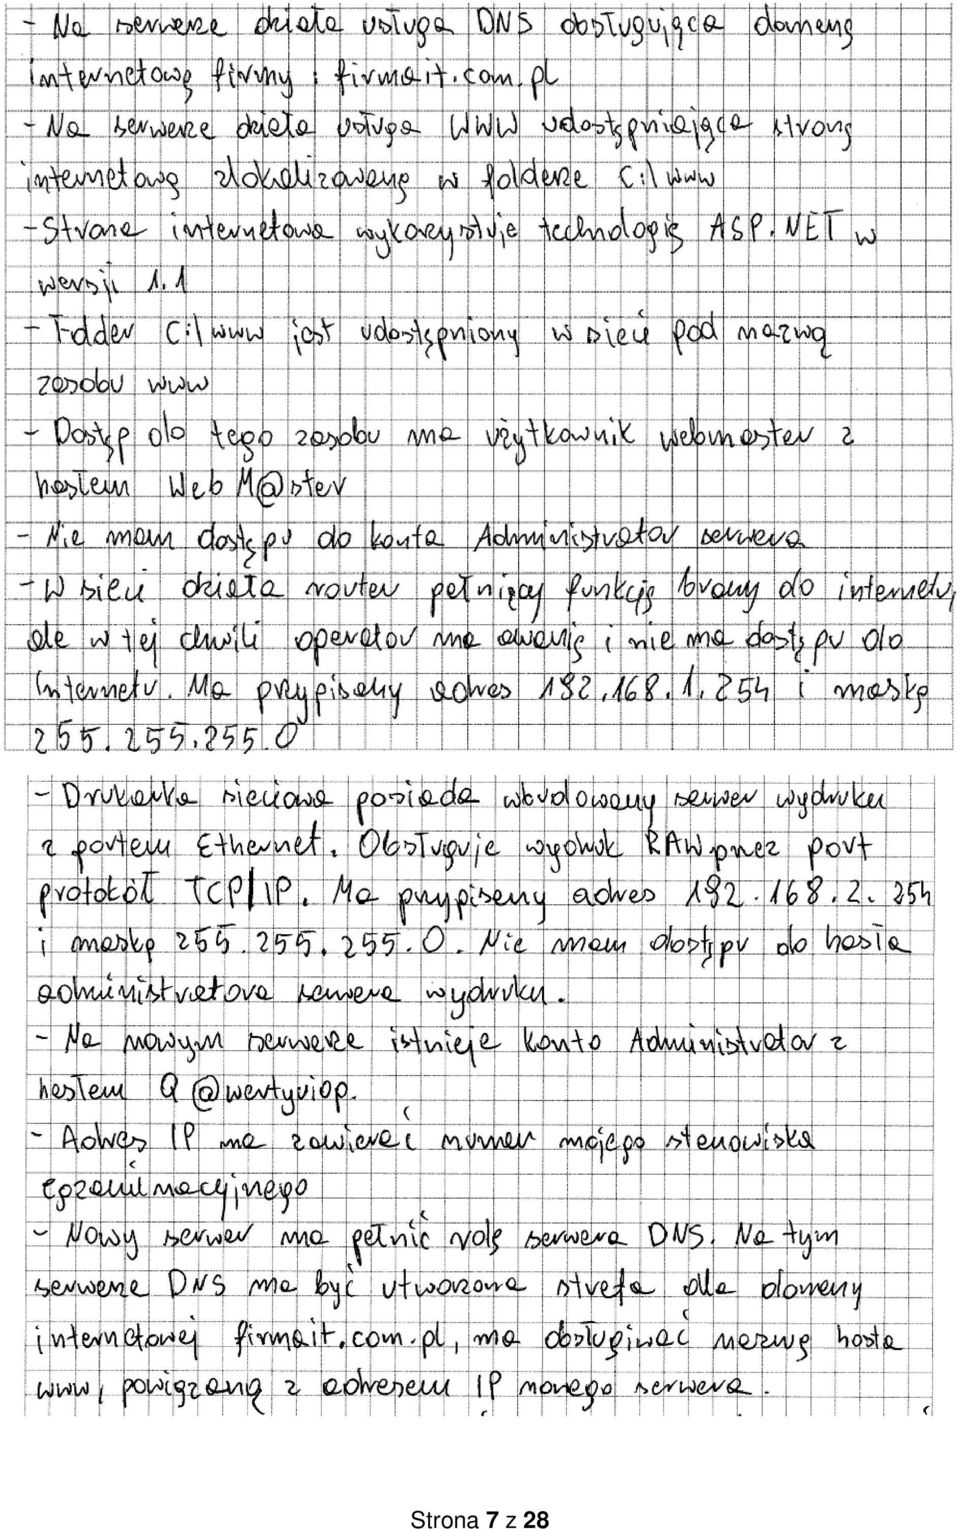 - Na serwerze działa usługa DNS obsługująca domenę
internetową firmy : firmait.com.pl
- Na serwerze działa usługa WWW udostępniająca stronę
internetową zlokalizowaną w folderze C:\www
- Strona internetowa wykorzystuje technologię ASP.NET w
wersji 1.1
- Folder C:\www jest udostępniony w sieci pod nazwą
zasobu www
- Dostęp do tego zasobu ma użytkownik webmaster z
hasłem WebM@ster
- Nie mam dostępu do konta Administrator serwera
- W sieci działa router pełniący funkcję bramy do internetu,
ale w tej chwili operator ma awarię i nie ma dostępu do
Internetu. Ma przypisany adres 192.168.1.254 i maskę
255.255.255.0
- Drukarka sieciowa posiada wbudowany serwer wydruku
z portem Ethernet. Obsługuje wydruk RAW przez port
protokół TCP/IP. Ma przypisany adres 192.168.2.254
i maskę 255.255.255.0. Nie mam dostępu do hasła
administratora serwera wydruku.
- Na nowym serwerze istnieje konto Administrator z
hasłem Q@wertyuiop.
- Adres IP ma zawierać numer mojego stanowiska
egzaminacyjnego
- Nowy serwer ma pełnić rolę serwera DNS. Na tym
serwerze DNS ma być utworzona strefa dla domeny
internetowej firmait.com.pl, ma obsługiwać nazwę hosta
www, powiązaną z adresem IP nowego serwera.
Strona 7 z 28